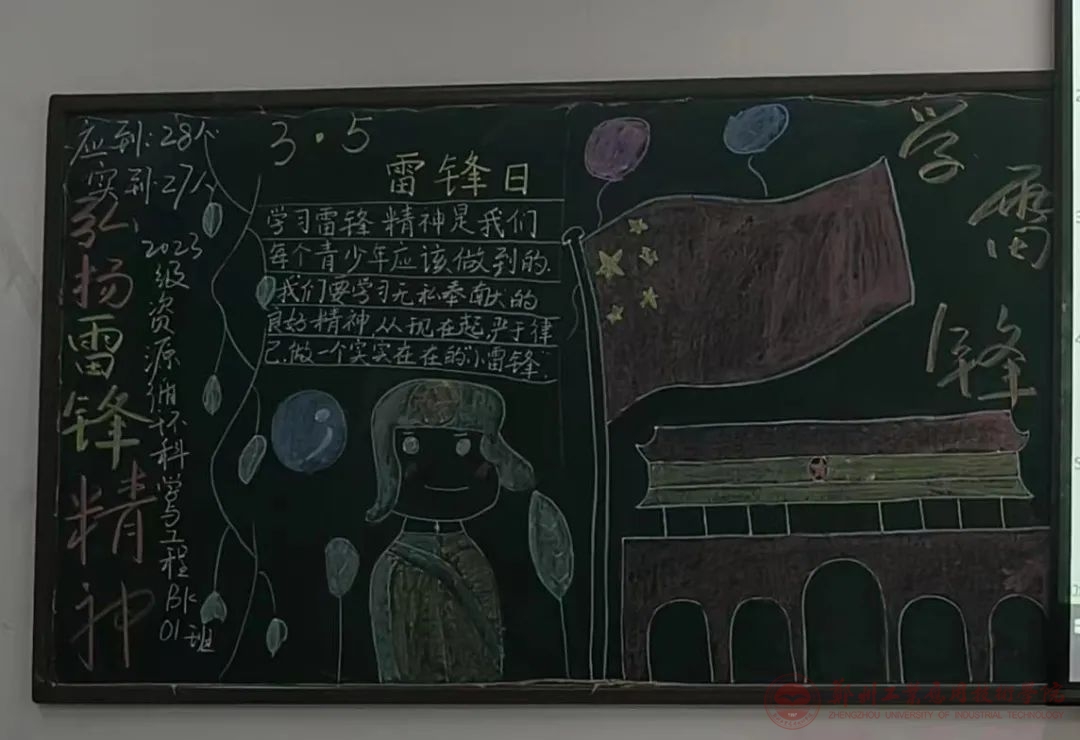 应到:28个
实到:27个
弘扬雷锋精神
2023级资源循环科学与工程BK01班
3·5
雷锋日
学习雷锋精神是我们
每个青少年应该做到的.
我们要学习无私奉献的
良好精神,从现在起,严于律
己.做一个实实在在的"小雷锋".
学雷锋
ZHENGZHOU UNIVERSITY OF INDUSTRIAL TECHNOLOGY